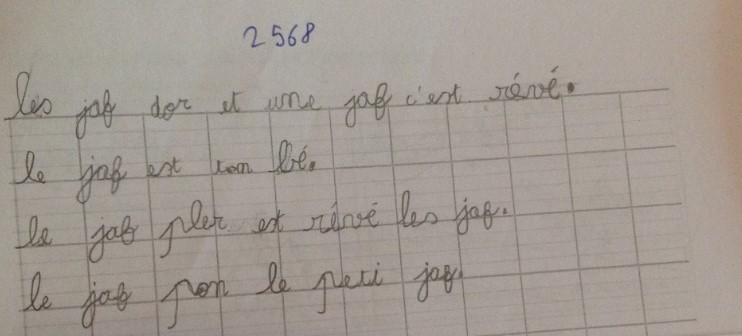 2568
les jaf dor et une jaf c'est révé.
le jaf est ton bé.
le jaf pler et révé les jaf.
le jaf pon le peti jaf